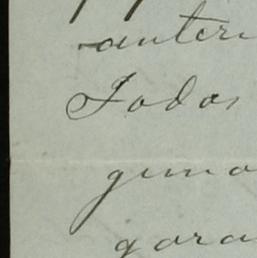 anteri
Todos
guna
gara